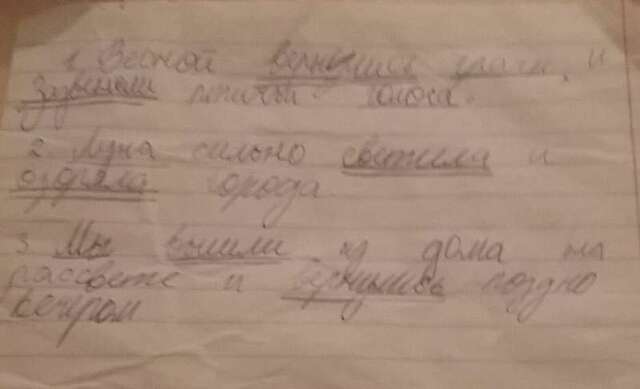 1. Весной вернулись грачи, и
Зазвенели птичьи голоса.
2. Луна сильно светила и
озаряла города
3. Мы вышли из дома на
рассвете и вернулись поздно
вечером